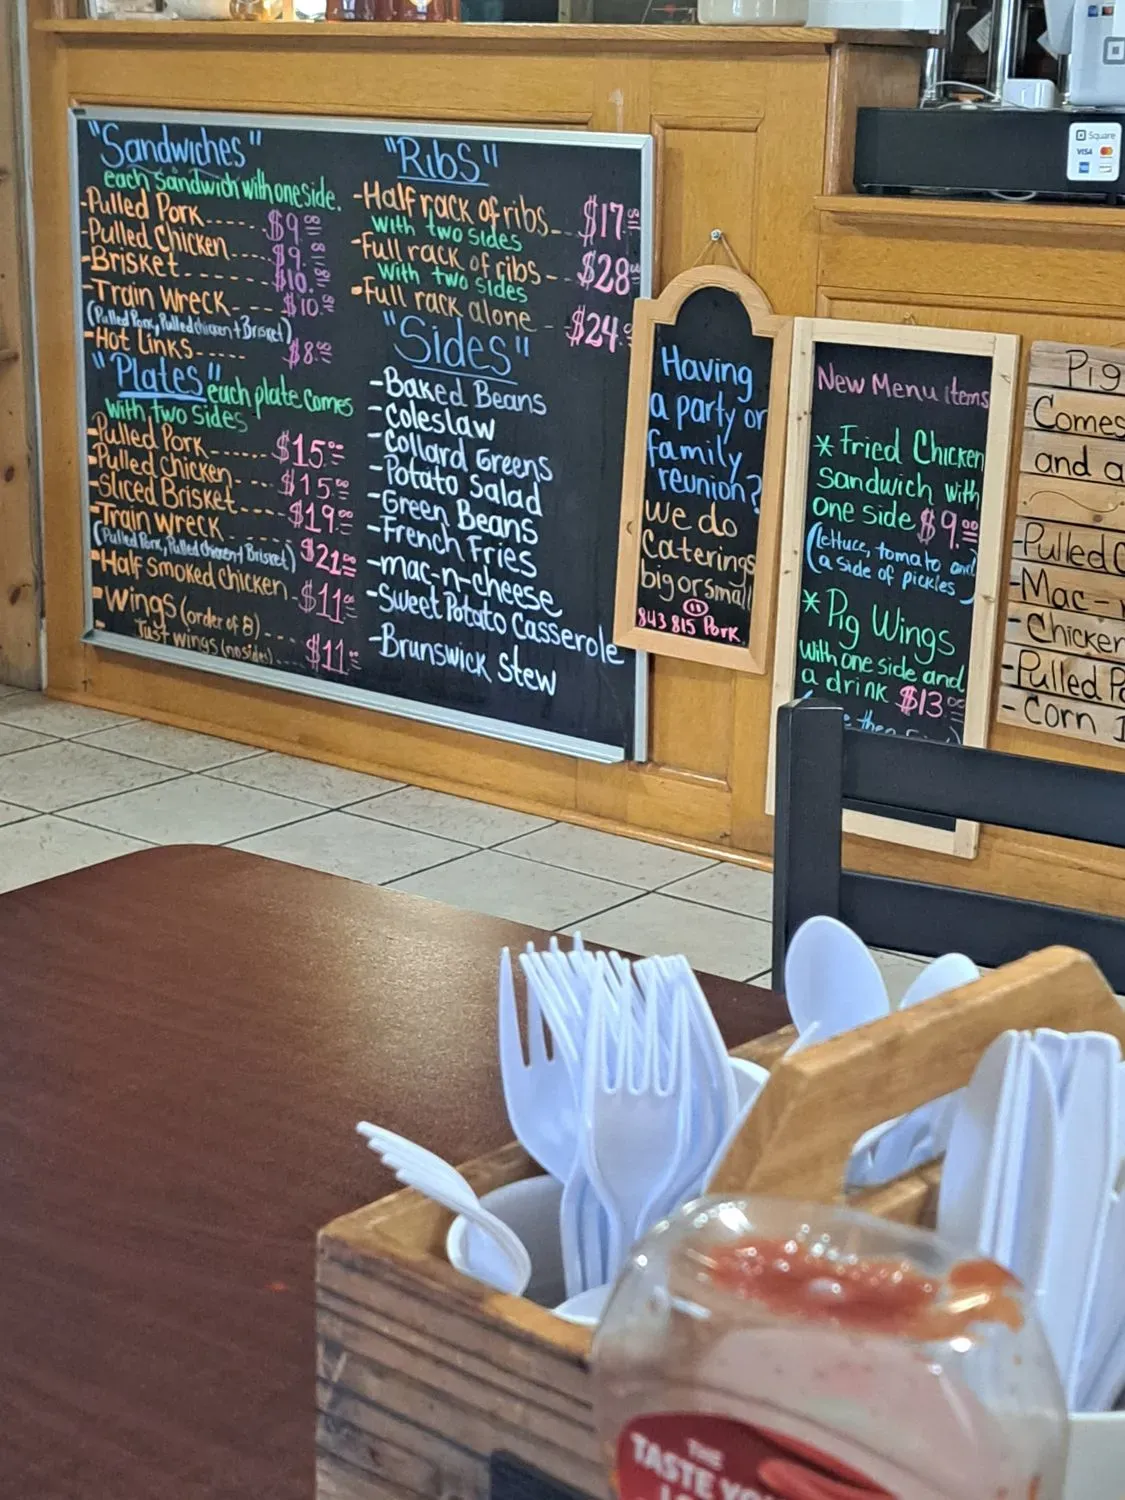 "Sandwiches"
each sandwich with one side.
-Pulled Pork----- $9.00
-Pulled Chicken---- $9.
-Brisket------- $10.
-Train Wreck---- $10.
(Pulled Pork, Pulled Chicken + Brisket)
-Hot Links----- $8.00
"Plates" each plate comes
with two sides
-Pulled Pork------ $15.00
-Pulled Chicken---- $15.00
-Sliced Brisket---- $19.00
-Train Wreck
(Pulled Pork, Pulled Chicken + Brisket) $21.00
-Half Smoked Chicken- $11.00
-Wings (order of 8)----
- Just wings (no sides)---- $11.00
"Ribs"
-Half rack of ribs-- $17.00
with two sides
-Full rack of ribs-- $28.00
with two sides
-Full rack alone -- $24.
"Sides"
-Baked Beans
-Coleslaw
-Collard Greens
-Potato Salad
-Green Beans
-French Fries
-mac-n-cheese
-Sweet Potato Casserole
-Brunswick Stew
Having
a party or
family
reunion?
we do
Caterings
big or small
843 815 Pork
New Menu items
* Fried Chicken
Sandwich with
one side $9.00
(lettuce, tomato and
a side of pickles)
* Pig Wings
with one side and
a drink $13.00
then
Pig
Comes
and a
-Pulled
-Mac-
-Chicken
-Pulled
-Corn
Square
VISA
THE
TASTE